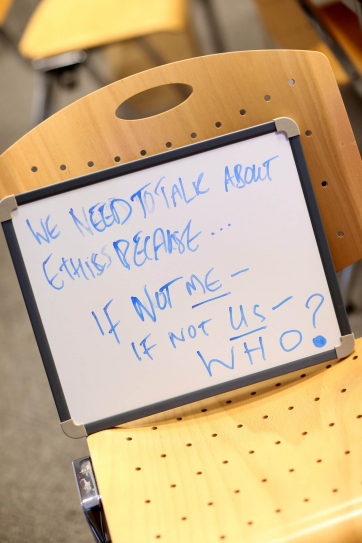 WE NEED TO TALK ABOUT
ETHICS BECAUSE...
IF NOT ME –
IF NOT US –
WHO?